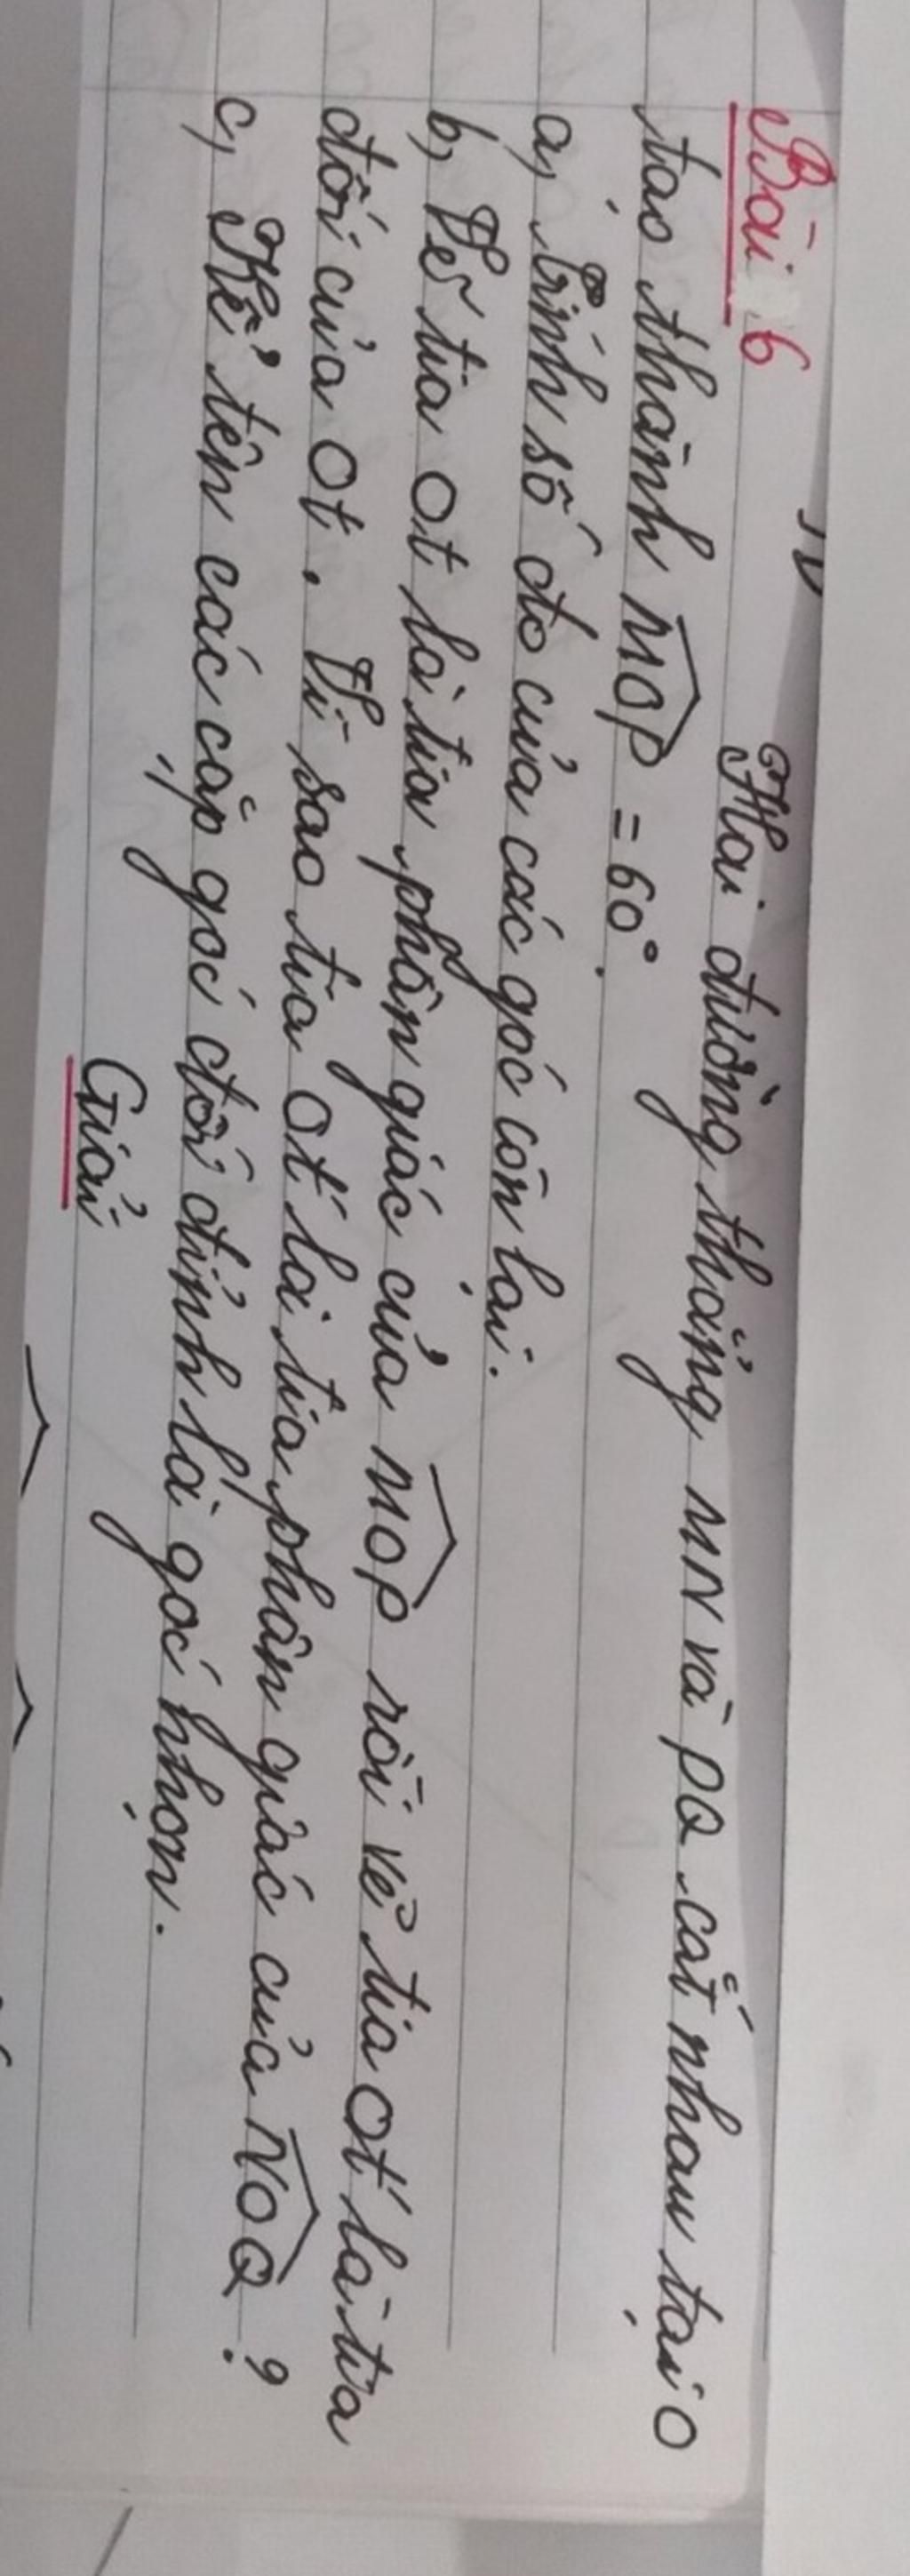 Bài 6 Hai đường thẳng MN và PQ cắt nhau tại O
tạo thành MOP = 60°.
a, Tính số đo của các góc còn lại.
b, Vẽ tia Ot là tia phân giác của MOP rồi vẽ tia Ot' là tia
đối của Ot. Vì sao tia Ot' là tia phân giác của NOQ ?
c, Kể tên các cặp góc đối đỉnh là góc nhọn.
Giải